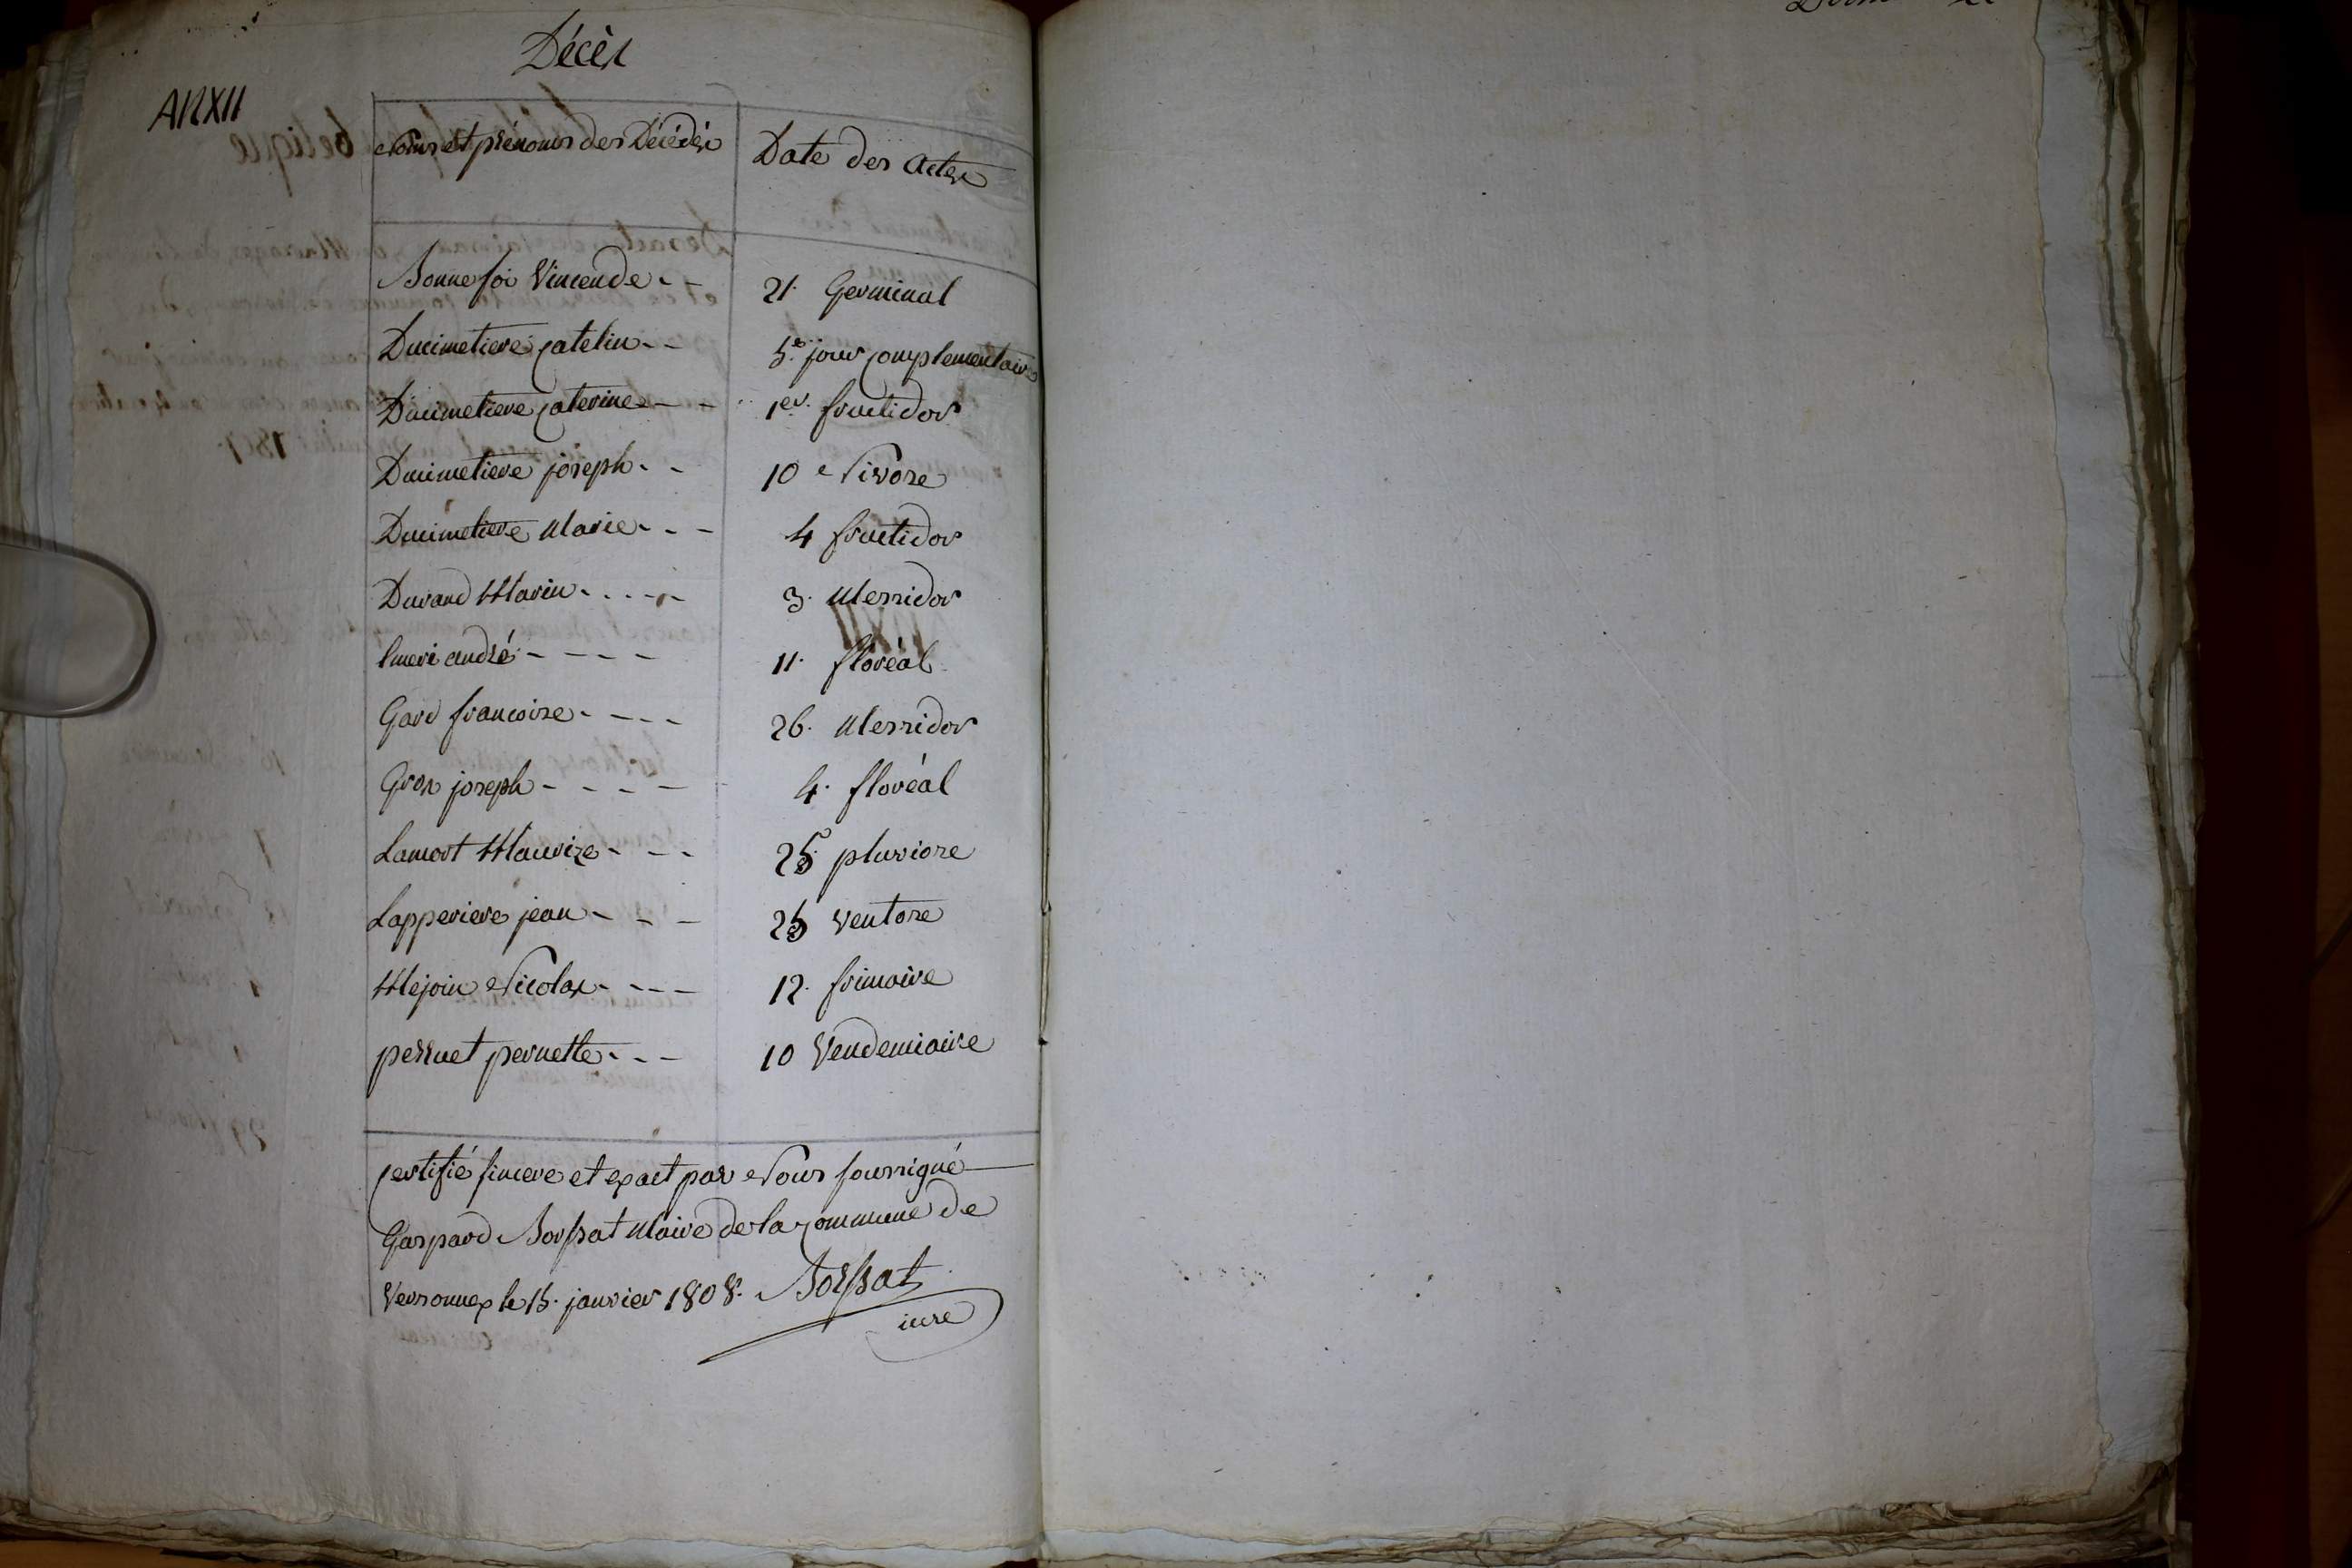 Décès
AN XII
Noms et prénoms des Décédés
Date des actes
Bonnefoi Vincende 21. Germinal
Ducimetiere catelin 5e. jour complementaire
Ducimetiere caterine 1er. fructidor
Ducimetiere joseph 10 Nivose
Ducimetiere Marie 4 fructidor
Durand Marin 3. Messidor
Emeri andré 11. floréal
Gard francoise 26. Messidor
Gros joseph 4. floréal
Lamort Maurize 25 pluviose
Lapperiere jean 25 ventose
Mejoin Nicolas 12. frimaire
perruet pernette 10 Vendemiaire
certifié sincere et exact par Nous soussigné
Gaspard Borssat Maire de la commune de
Versonnex le 15. janvier 1808. Borssat